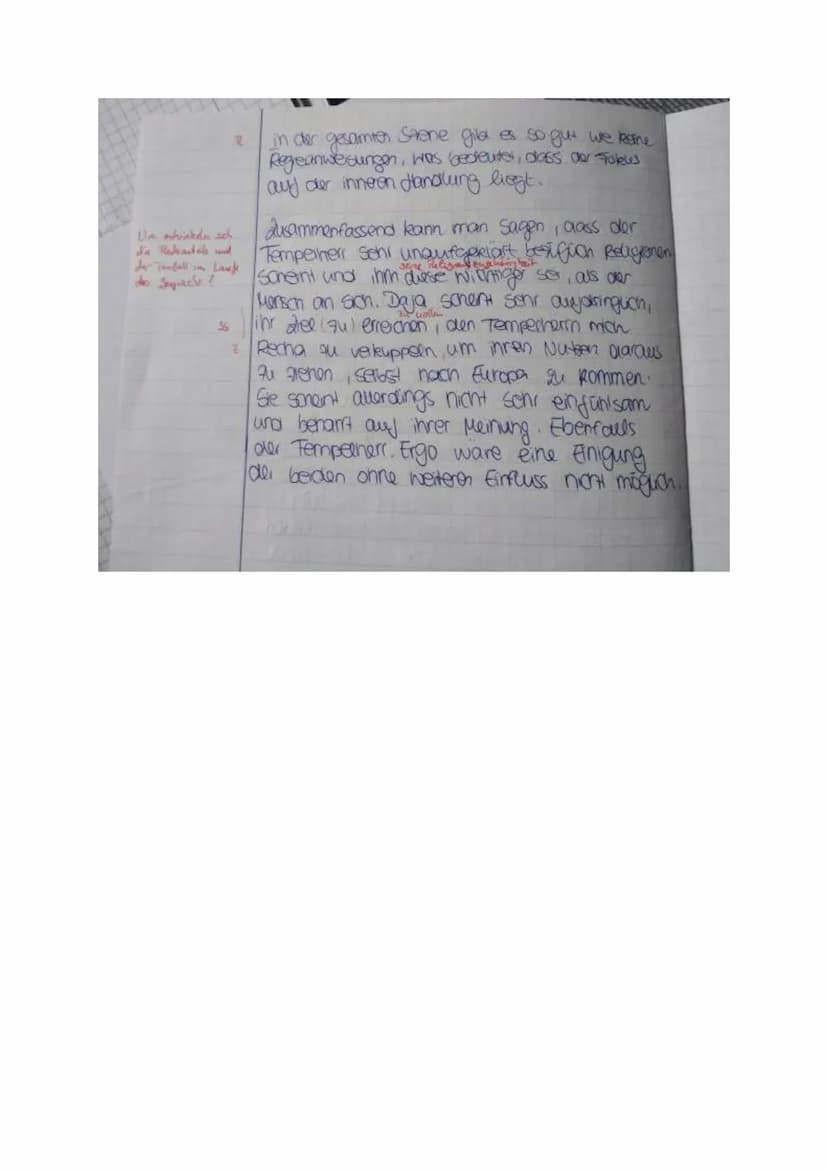 R
in der gesamten Szene gibt es so gut wie keine
Regieanweisungen, was bedeutet, dass der Fokus
auf der inneren Handlung liegt.
Zusammenfassend kann man sagen, dass der
Tempelherr sehr unaufgeklärt bezüglich Religionen
seine Religionszugehörigkeit
scheint und ihm diese wichtiger sei, als der
Mensch an sich. Daja scheint sehr aufdringlich,
zu wollen
ihr Ziel (zu) erreichen, den Tempelherrn mich
Recha zu verkuppeln, um ihren Nutzen daraus
zu ziehen, selbst nach Europa zu kommen.
Sie scheint allerdings nicht sehr einfühlsam
und beharrt auf ihrer Meinung. Ebenfalls
der Tempelherr. Ergo wäre eine Einigung
der beiden ohne weiteren Einfluss nicht möglich.
Wie entwickeln sich
die Redeanteile und
der im Laufe
des Gesprächs?
Sb